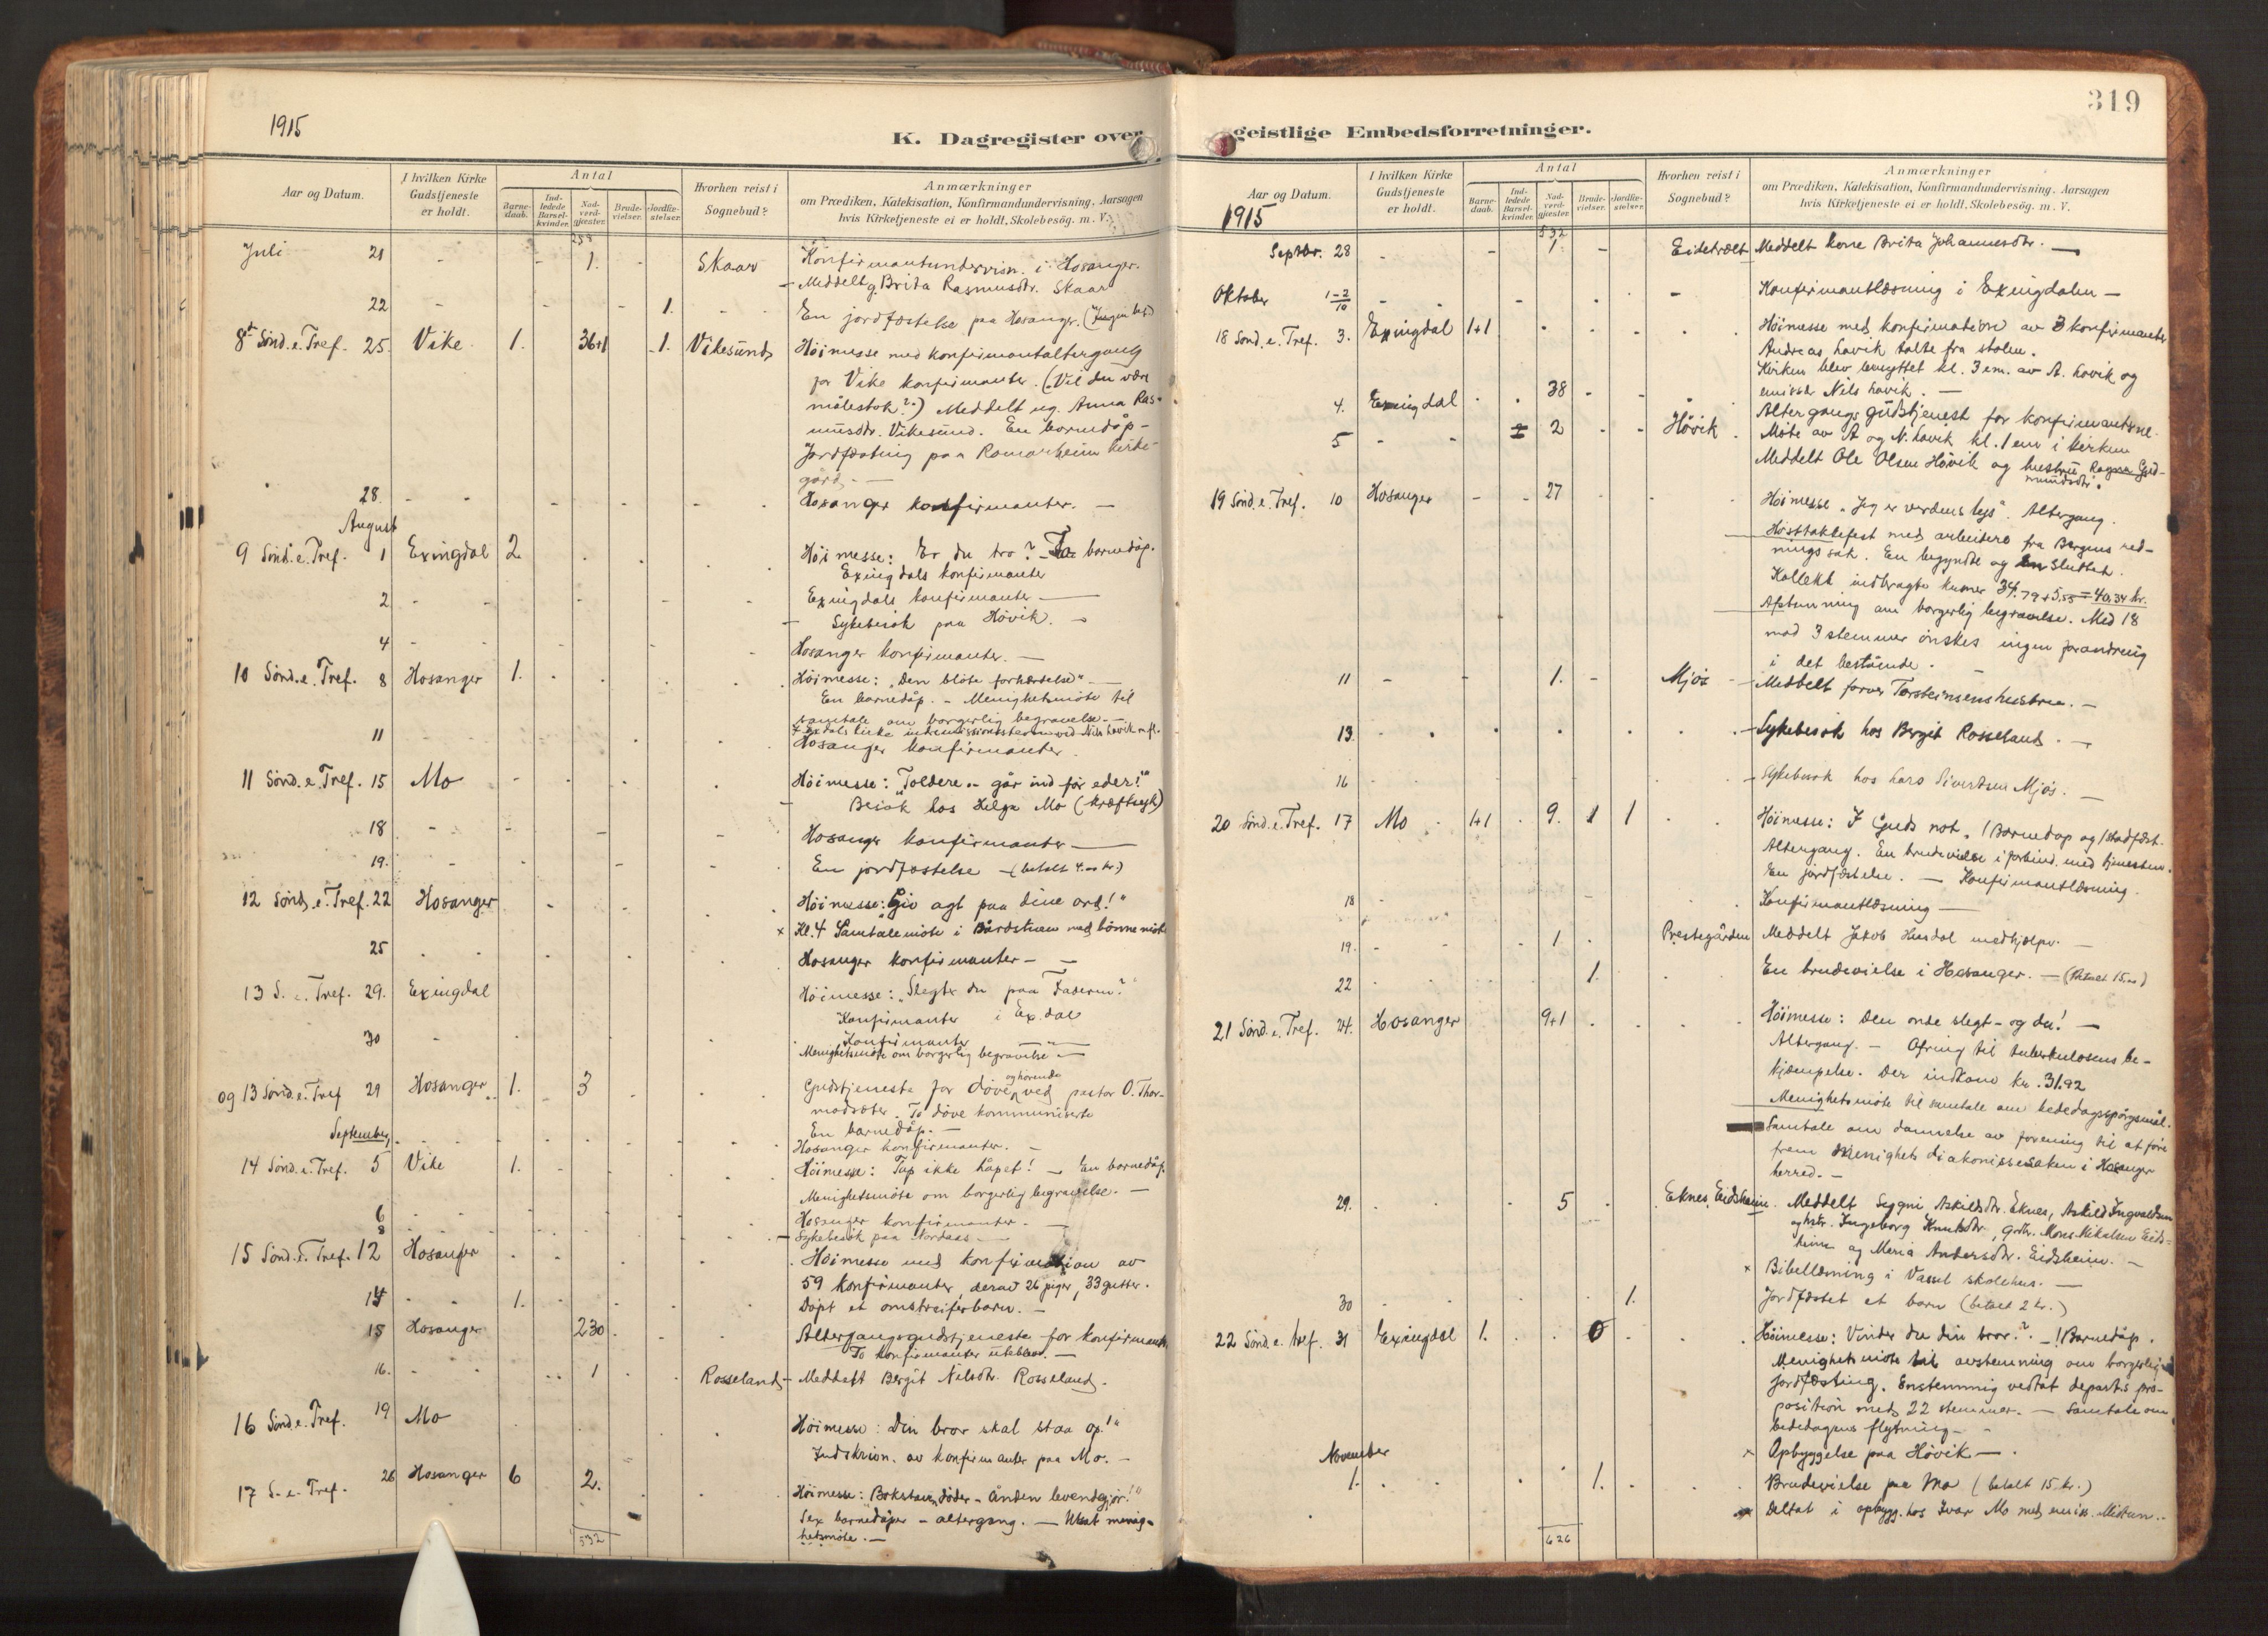 1915
K. Dagregister over
Aar og Datum.
I hvilken Kirke Gudstjeneste er holdt.
Antal
Barne-daab.
Ind-ledede Barsel-kvinder.
Nad-verd-gjæster.
Brude-vielser.
Jordfæ-stelser.
Hvorhen reist i Sognebud?
Anmærkninger
om Prædiken, Katekisation, Konfirmandundervisning, Aarsagen
hvis Kirketjeneste ei er holdt, Skolebesøg. m. V.
258
Juli 21 - - 1. - Skaar Konfirmantundervisn. i Hosanger.
- Meddelt g. Brita Rasmusdtr. Skaar
22 - - - 1. - En jordfæstelse paa Hosanger.
8de Sønd. e. Tref. 25. Vike 1. 36+1 1. Vikesund Høimesse med konfirmantaltergang
for Vike konfirmanter. (Vil du være
målestok?) Meddelt ug. Anna Ras-
musdtr. Vikesund. En barnedåp-
Jordfæsting paa Romarheim kirke-
gård. -
28. - - Hosanger konfirmanter. -
August
9 Sønd. e. Tref. 1 Exingdal 2 Høimesse: Er du tro? - To barnedåp.
Exingdals konfirmanter
2 - - Exingdals konfirmanter -
- Sykebesøk paa Høvik. -
4 - - Hosanger konfirmanter. -
10 Sønd. e. Tref. 8 Hosanger 1. Høimesse: "Den blote forhærdelse" -
En barnedåp. - Menighetsmöte til
samtale om borgerlig begravelse. -
11 Hosanger konfirmanter.
11 Sønd. e. Tref. 15 Mo Høimesse: "Toldere - går ind før eder!"
- Besøk hos Helga Mo (kræftsyk)
18 - - Hosanger konfirmanter -
19. - - En jordfæstelse - (betalt 4.00 kr.)
12 Sønd. e. Tref. 22 Hosanger Høimesse: Giv agt paa dine ord!"
x Kl. 4 Samtalemöte i Bårdstuen med bönnemöte
25 Hosanger konfirmanter - -
13 S. e. Tref. 29. Exingdal Høimesse: "Slegter du paa Faderen?"
Konfirmanter i Ex.dal
30 - Konfirmanter -
Menighetsmöte om borgerlig begravelse -
og 13 Sønd. e. Tref 29 Hosanger 1. 3 Gudstjeneste for döve og hörende ved pastor O. Thor-
modsæter. To döve kommuniserte
En barnedåp. -
September
Hosanger konfirmanter. -
14 Sønd. e. Tref. 5 Vike 1. Høimesse: Tap ikke håpet! - En barnedåp.
Menighetsmöte om borgerlig begravelse. -
6 Hosanger konfirmanter. -
8 - Sykebesøk paa Nordaas -
15 Sønd. e. Tref. 12 Hosanger Høimesse med konfirmation av
59 konfirmanter, derav 26 piger, 33 gutter.
14 - - 1. Döpt et omstreiferbarn. -
15 Hosanger 230 Altergangsgudstjeneste for konfirmanter,
To konfirmanter uteblev. -
16. - - 1 Rosseland - Meddelt Bergit Nilsdtr. Rosseland.
16 Sønd. e. Tref. 19 Mo Høimesse: Din bror skal staa op!"
Indskrivn. av konfirmanter paa Mo. -
17 S. e. Tref. 26 Hosanger 6 2. Høimesse: "Bokstaven döder - Ånden levendegjör!"
Sex barnedåper - altergang. - Utsat menig-
hetsmöte. -
532
319
geistlige Embedsforretninger.
Aar og Datum.
I hvilken Kirke Gudstjeneste er holdt.
Antal
Barne-daab.
Ind-ledede Barsel-kvinder.
Nad-verd-gjæster.
Brude-vielser.
Jordfæ-stelser.
Hvorhen reist i Sognebud?
Anmærkninger
om Prædiken, Katekisation, Konfirmandundervisning, Aarsagen
hvis Kirketjeneste ei er holdt, Skolebesøg. m. V.
1915
532
Septbr. 28 - - 1. - Eidetræet Meddelt kone Brita Johannesdtr. -
Oktober 1-2/10 - - Konfirmantlæsning i Exingdalen -
18 Sønd. e. Tref. 3. Exingdal 1+1 Høimesse med konfirmation av 3 konfirmanter
Andreas Lavik talte fra stolen.
Kirken blev benyttet kl. 3 em. av A. Lavik og
emissær Nils Lavik. -
4. Exingdal 38 Altergangsgudstjenest for konfirmanterne.
5 - - 2 Høvik Möte av A og N. Lavik kl. 1 em i kirken
Meddelt Ole Olsen Høvik og hustru, Ragna Gud-
mundsdtr.
19 Sønd. e. Tref. 10 Hosanger 27 Høimesse "Jeg er verdens lys". Altergang.
Høsttakkefest med arbeidere fra Bergens red-
ningssak. En begyndte og en sluttet.
Kollekt indbragte kroner 34.79+5.55=40,34 kr.
Afstemning om borgerlig begravelse. Med 18
mod 3 stemmer ønskes ingen forandring
i det bestående. -
11 - - 1. - Mjøs - Meddelt forrv. Torsteinsens hustru. -
13. - Sykebesøk hos Bergit Rosseland. -
16 - Sykebesøk hos Lars Sivertsen Mjøs. -
20 Sønd. e. Tref. 17 Mo 1+1 9. 1 1 Høimesse: I Guds not. 1 Barnedåp og 1 stadfæst.
Altergang. En brudevielse i forbind. med tjenesten.
En jordfæstelse. - Konfirmantlæsning.
18 - Konfirmantlæsning -
19. - - 1 Prestegården Meddelt Jakob Husdal medhjelper. -
22 1. En brudevielse i Hosanger. - (Betalt 15.00)
21 Sønd. e. Tref. 24. Hosanger 9+1 Høimesse: Den onde slegt - og du! -
Altergang. - Ofring til tuberkulosens be-
kjæmpelse. Der indkom kr. 31.92
Menighetsmöte til samtale om bededagsspörgsmål.
Samtale om dannelse av forening til at före
frem Menighets diakonissesaken i Hosanger
herred. -
29. 5 Eknes, Eidsheim. Meddelt Seggni Askildsdtr. Eknes, Askild Ingvaldsen
og hstr. Ingeborg Knutsdtr, Grdbr. Mons Mikalsen Eids-
heim og Maria Andersdtr. Eidsheim. -
x Bibellæsning i Vassel skolehus. -
30 1. Jordfæstet et barn (betalt 2 kr.)
22 Sønd. e. tref. 31 Exingdal 1. 0 Høimesse: Vinder du din bror? - 1 Barnedåp.
Menighetsmöte til avstemning om borgerlig
jordfæsting. Enstemmig vedtat departs pro-
position med 22 stemmer. - Samtale om
bededagens flytning -
x Opbyggelse paa Høvik -
November
1. 1. Brudevielse paa Mo (betalt 15 kr.)
x Deltat i opbygg. hos Ivar Mo med emiss.
626